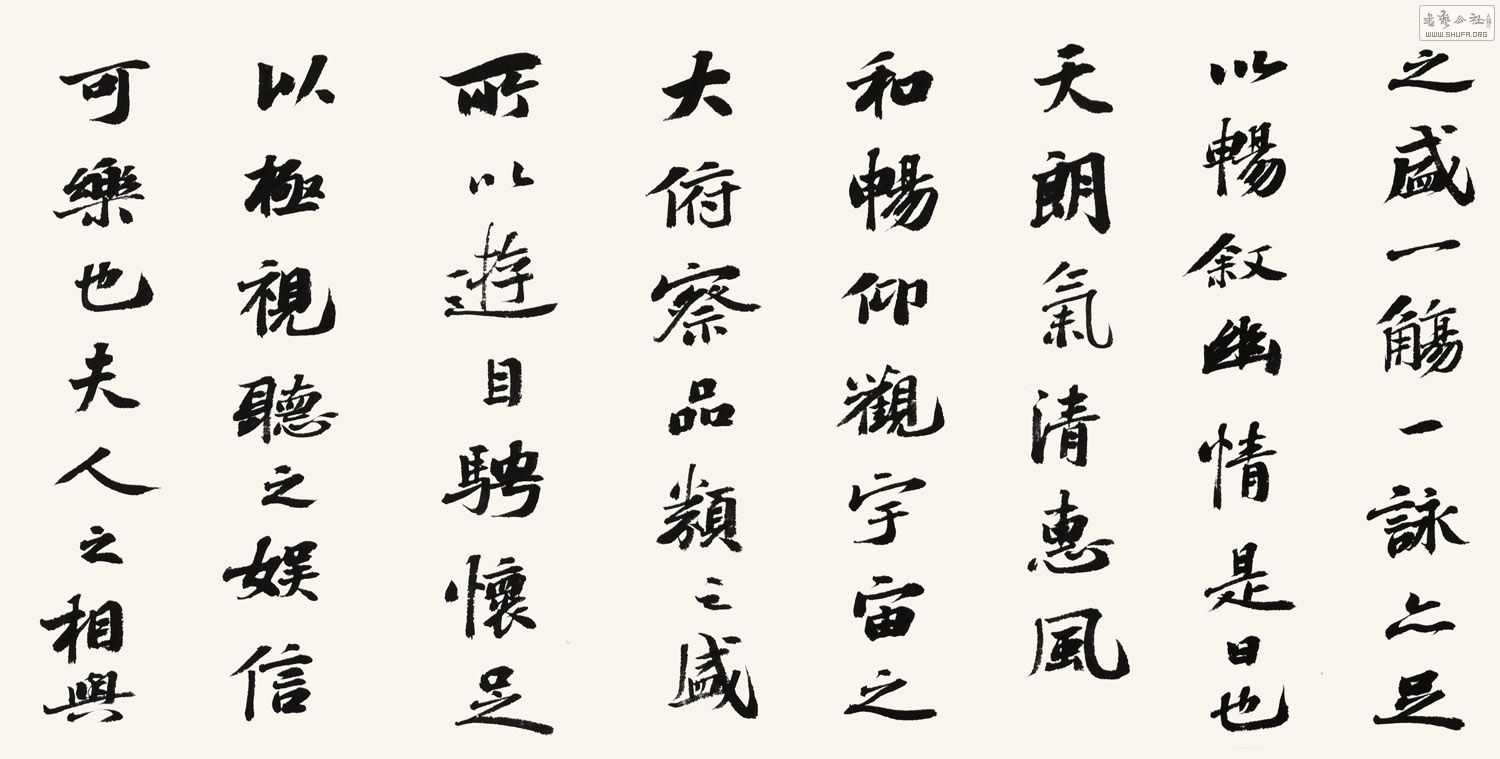 之盛一觴一詠亦足
以暢叙幽情是日也
天朗氣清惠風
和暢仰觀宇宙之
大俯察品類之盛
所以遊目騁懷足
以極視聽之娱信
可樂也夫人之相與
WWW.SHUFA.ORG